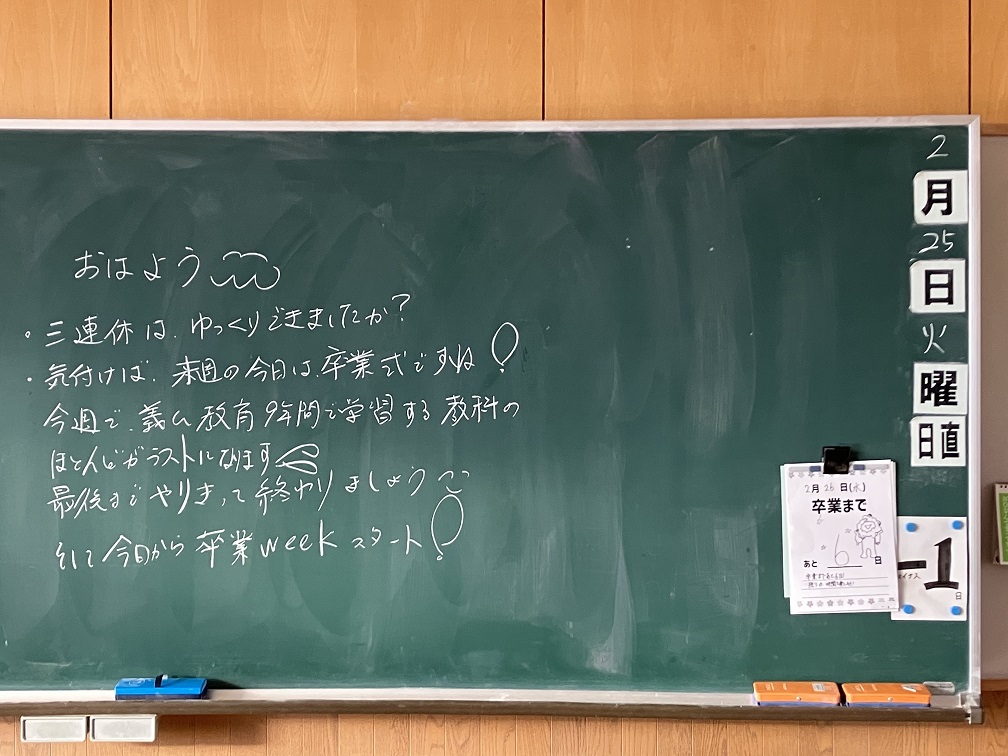 おはよう
・三連休は、ゆっくりできましたか?
・気付けば、来週の今日は、卒業式ですね!
今週で、義ム教育9年間で学習する教科の
ほとんどがラストになります
最後までやりきって終わりましょう
そして今日から卒業weekスタート!
2
月
25
日
火
曜
日直
2月26日(水)
卒業まで
あと 6 日
-1
マイナス
日